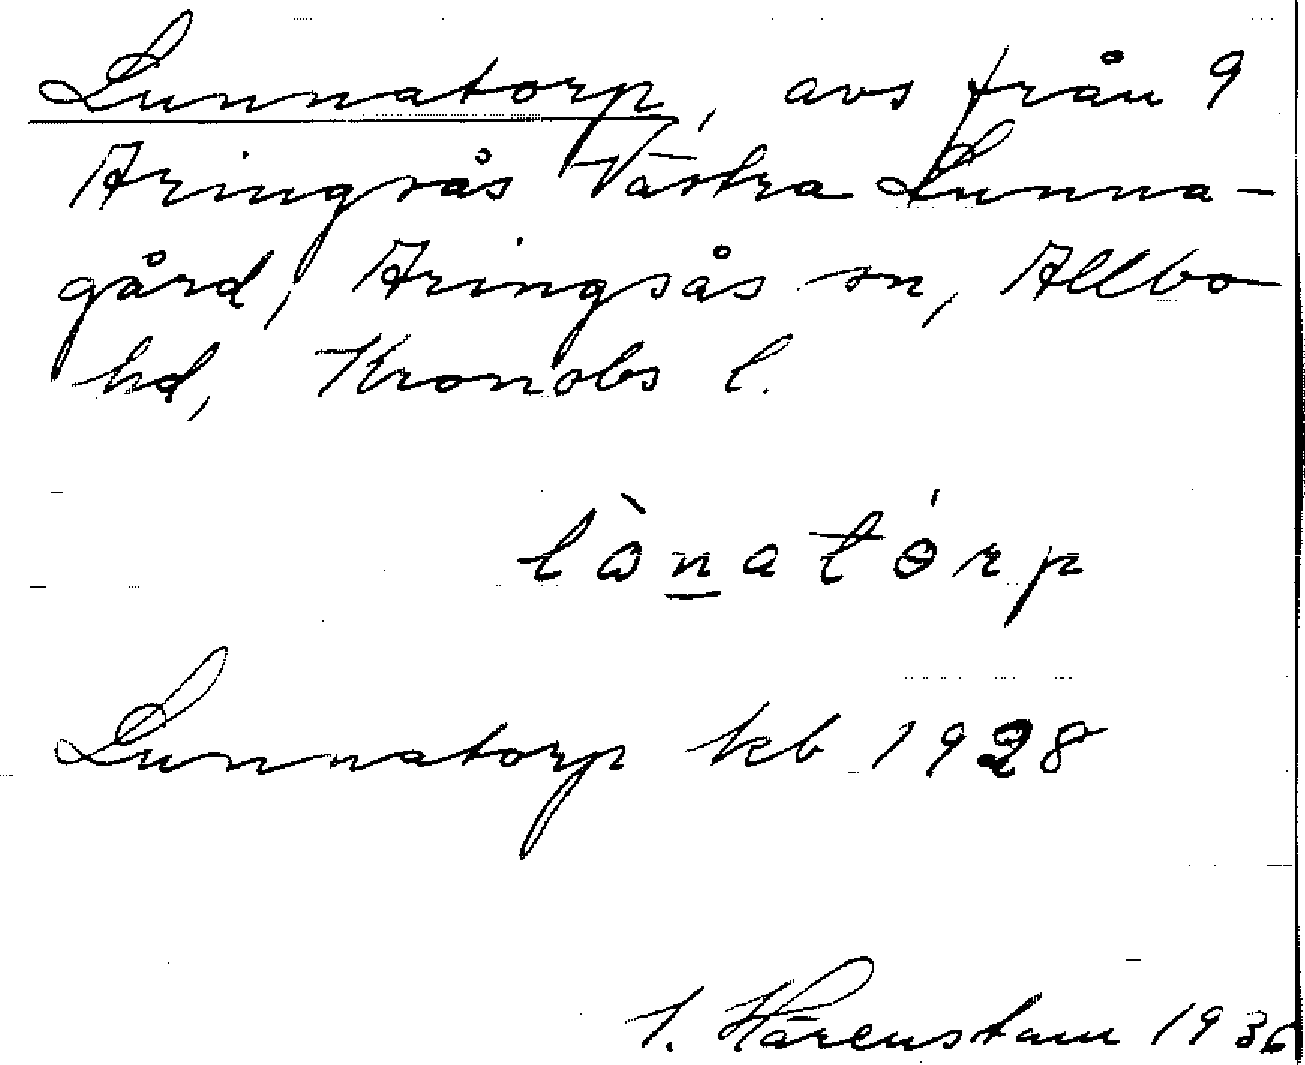 Lunnatorp, avs från 9
Aringsås Västra Lunna-
gård, Aringsås sn, Allbo
hd, Kronobs l.
lònatórp
Lunnatorp kb 1928
I. Härenstam 1936